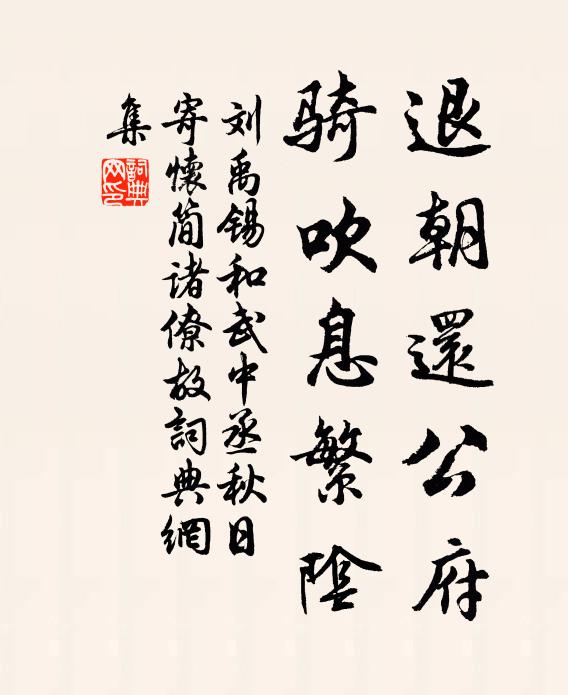 退朝還公府
骑吹息繁陰
刘禹锡和武中丞秋日
寄懷简诸僚故詞典網
集
詞典网印